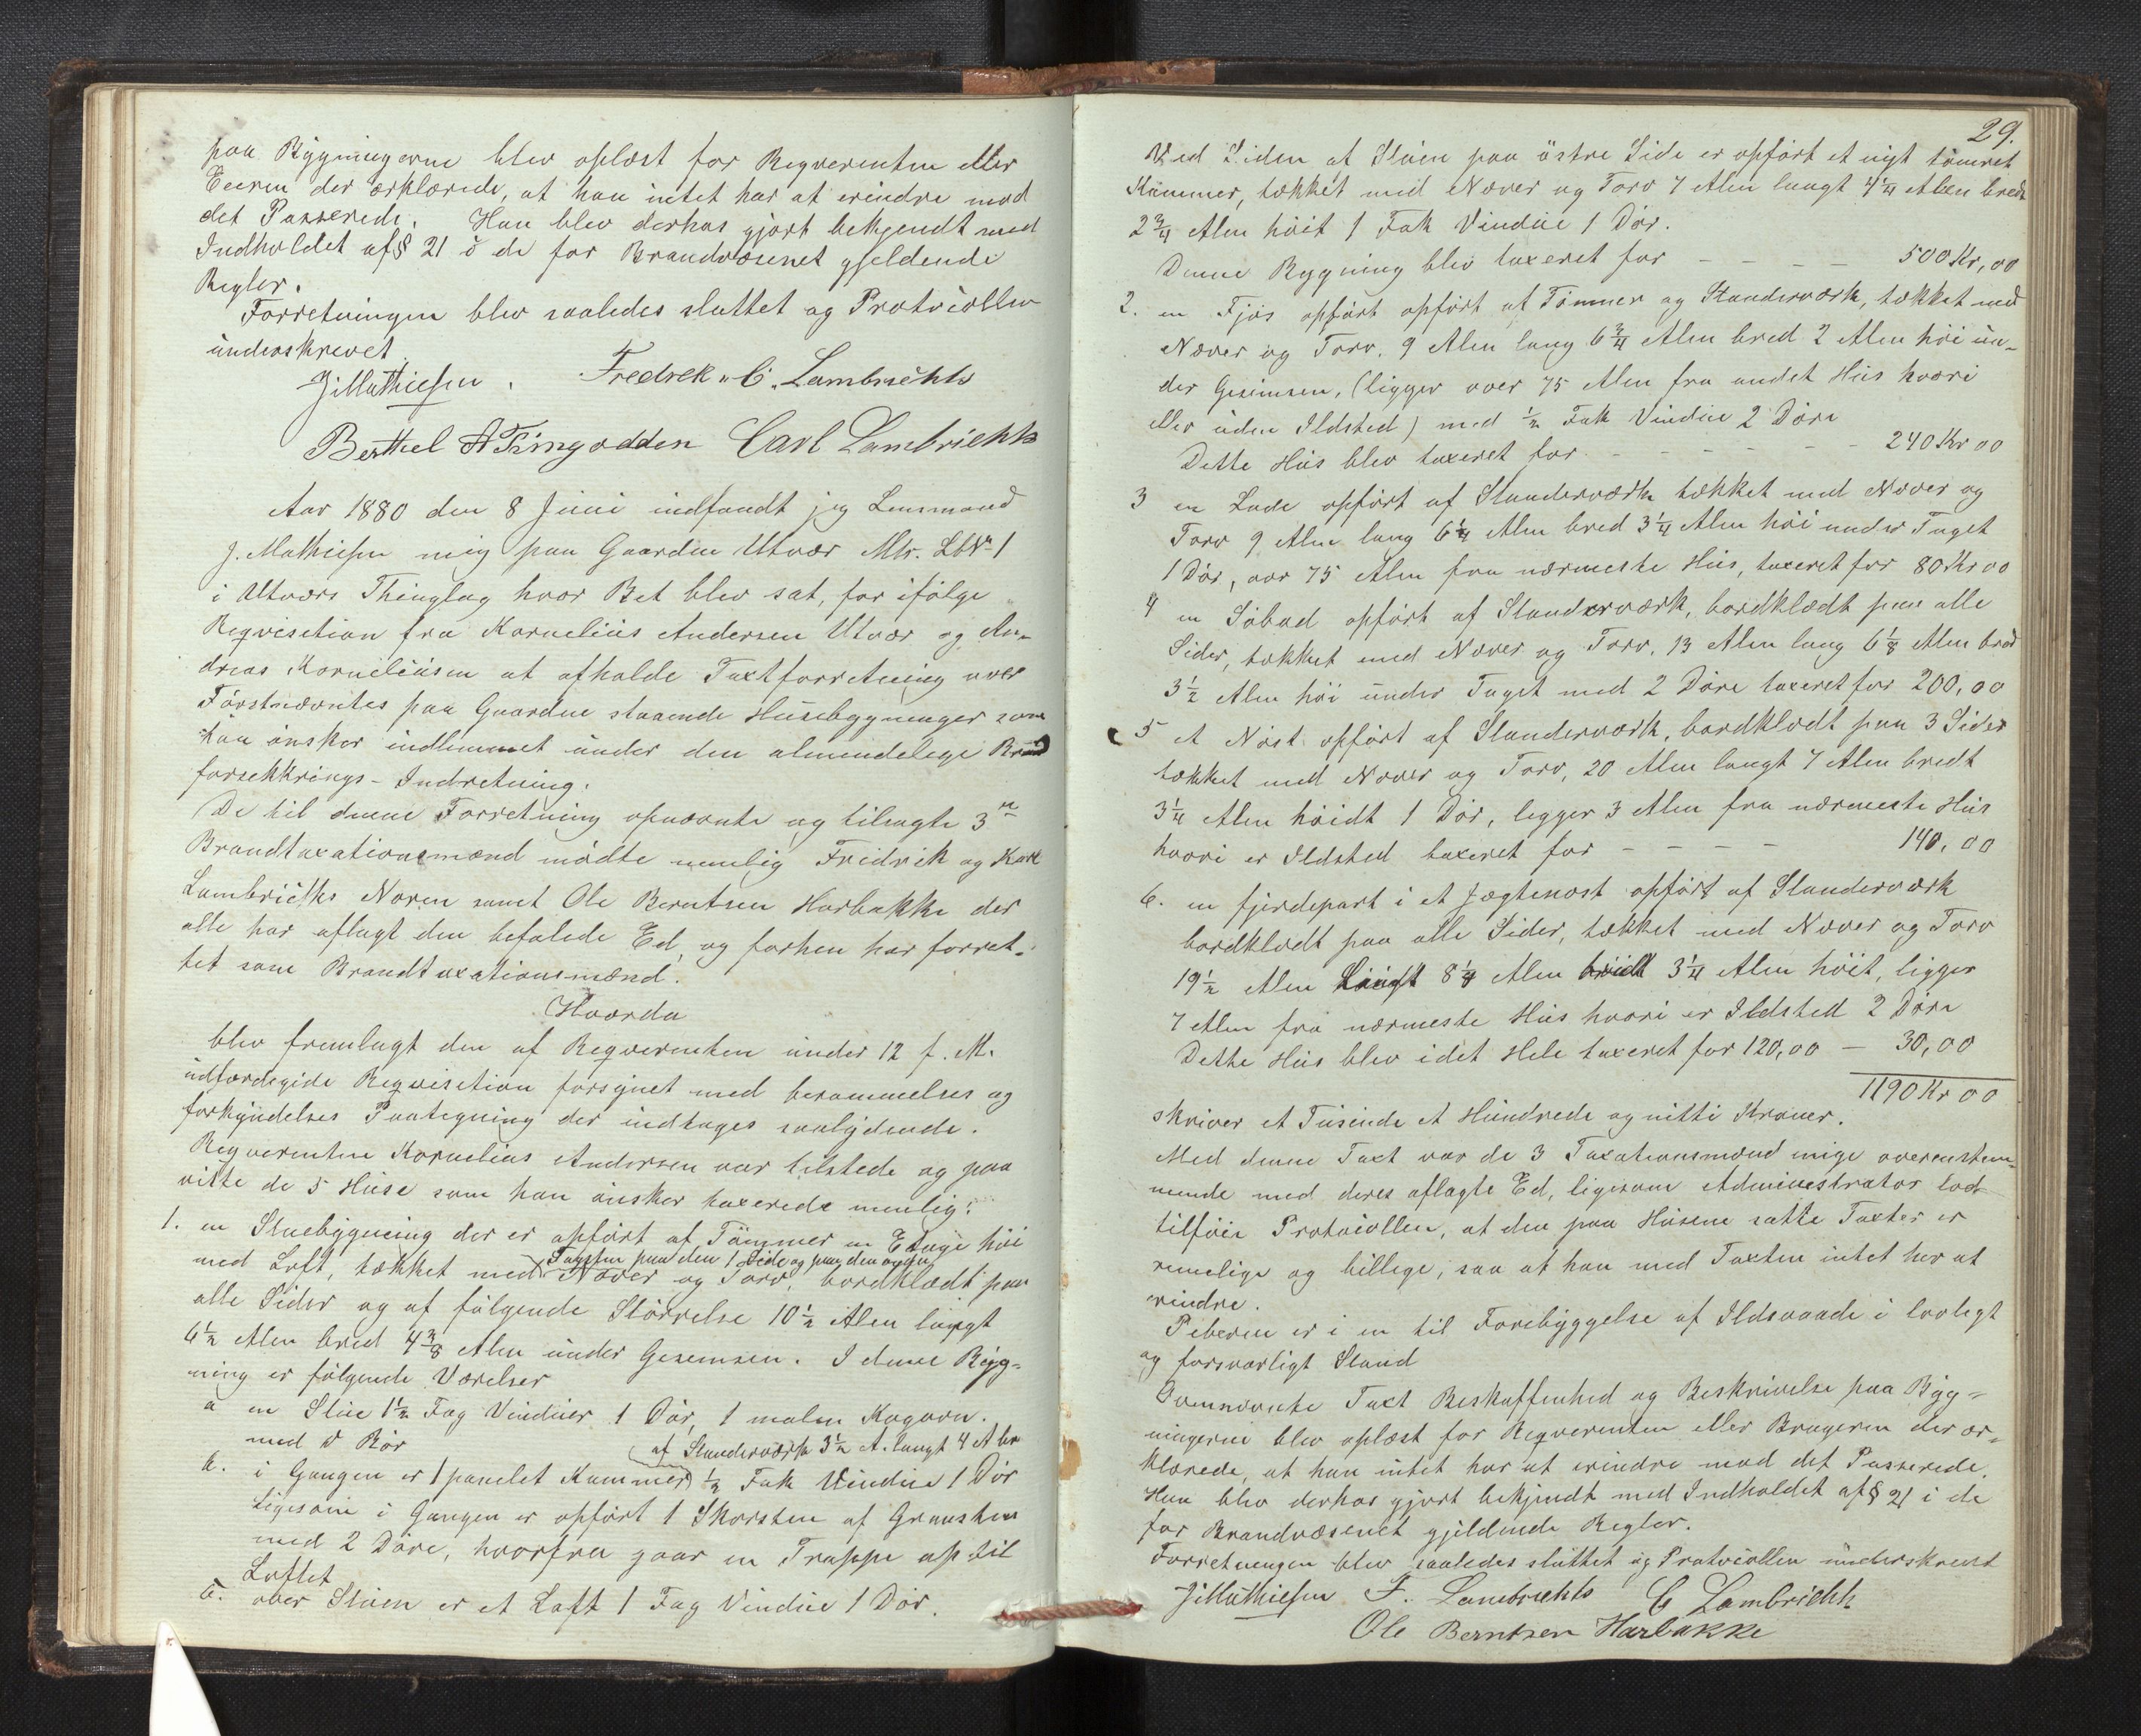 paa Bygningerne blev oplæst for Reqverenten eller
Eeren der ærklærede, at han intet har at erindre mod
det Passerede. Han blev derhos gjort bekjendt med
Indholdet af § 21 i de for Brandvæsenet gjeldende
Regler.
Forretningen blev saaledes sluttet og Protocollen
underskrevet
J Mathiesen. Fredrek C. Lambrichts
Berthel A Tsingodden Carl Lambrichts
Aar 1880 den 8 Juni indfandt jeg Lensmand
J. Mathiesen mig paa Gaarden Utvær Mtr. LNr 1
i Utværs Thinglag hvor Ret blev sat, for ifølge
Reqvisition fra Kornelius Andersen Utvær og An-
dreas Korneliusen at afholde Taxtforretning over
Førstnævntes paa Gaarden staaende Husebygninger som
han ønsker indlemmet under den almindelige Brand
forsekkrings-Indretning.
De til denne Forretning opnævnte og tilsagte 3de
Brandtaxationsmænd mødte nemlig Fridrik og Karl
Lambrichts Noren samt Ole Berntsen Harbakke der
alle har aflagt den befalede Ed, og forhen har forret-
tet som Brandtaxationsmænd.
Hvorda
blev fremlagt den af Reqverenten under 12 f. M.
udfærdigede Reqvisition forsynet med berammelses og
forkyndelses Paategning der indtages saalydende.
Reqverenten Kornelius Andersen var tilstede og paa
viste de 5 Huse som han ønsker taxerede nemlig:
1. en Stuebygning der er opført af Tømmer en Etage høi
Tagsten paa den 1 Side og paa den anden
med Loft, tækket med Næver og Torv, bordklædt paa
alle Sider og af følgende Størrelse 10½ Alen langt
6½ Alen bred 4⅜ Alen under Gesemsen. I denne Byg-
ning er følgende Værelser
a en Stue 1½ Fag Vinduer 1 Dør, 1 malen Kogovn.
med Rør
af Standerværk 3½ A. langt 4 A br
b. i Gangen er 1 panelet Kammer ½ Fak Vindue 1 Dør
ligesom i Gangen er opført 1 Skorsten af Graasten
med 2 Døre, hvorfra gaar en Trappe op til
Loftet
c. over Stuen er et Loft 1 Fag Vindue 1 Dør.
29.
Ved Siden af Stuen paa østre Side er opført et nyt tømret
Kammer, tækket med Næver og Torv 7 Alen langt 4¼ Alen bredt
2¾ Alen høit 1 Fak Vindue 1 Dør.
Denne Bygning blev taxeret for - - - - 500 Kr,00
2. en Fjøs opført opført af Tømmer og Standerværk, tækket med
Næver og Torv. 9 Alen lang 6¾ Alen bred 2 Alen høi un-
der Gesimsen, (ligger over 75 Alen fra andet Hus hvori
eller uden Ildsted) med ½ Fak Vindue 2 Døre
Dette Hus blev taxeret for - - - - 240 Kr 00
3 en Lade opført af Standerværk tækket med Næver og
Torv 9 Alen lang 6¼ Alen bred 3¼ Alen høi under Taget
1 Dør, over 75 Alen fra nærmeste Hus, taxeret for 80 Kr 00
4 en Søbod opført af Standerværk, bordklædt paa alle
Sider, tækket med Næver og Torv. 13 Alen lang 6⅛ Alen bred
3½ Alen høi under Taget med 2 Døre taxeret for 200,00
5 et Nøst opført af Standerværk, bordklædt paa 3 Sider
tækket med Næver og Torv, 20 Alen langt 7 Alen bredt
3¼ Alen høidt 1 Dør, legger 3 Alen fra nærmeste Hus
hvori er Ildsted taxeret for - - - - 140,00
6. en fjerdepart i et Jægtenøst opført af Standerværk
bordklædt paa alle Sider, tækket med Næver og Torv
19½ Alen langt 8¼ Alen bredt 3¼ Alen høit, ligger
7 Alen fra nærmeste Hus hvori er Ildsted 2 Døre
Dette Hus blev i det Hele taxeret for 120,00 - 30,00
1190 Kr 00
skriver et Tusende et Hundrede og nitti Kroner.
Med denne Taxt var de 3 Taxationsmænd enige overenstem-
mende med deres aflagte Ed, ligesom Administrator lod
tilføie Protocollen, at den paa Husene satte Taxter er
remelige og billege, saa at han med Taxten intet har at
erindre.
Piberne er i en til Forebyggelse af Ildsvaade i lovlegt
og forsvarligt Stand
Ovennævnte Taxt Beskaffenhed og Beskrivelse paa Byg-
ningerne blev oplæst for Reqverenten eller Brugeren der ær-
klærede, at han intet har at erindre mod det Passerede.
Han blev derhos gjort bekjendt med Indholdet af § 21 i de
for Brandvæsenet gjeldende Regler.
Forretningen blev saaledes sluttet og Protocollen underskrevet
J Mathiesen F. Lambrichts C Lambrichts
Ole Berntsen Harbakke